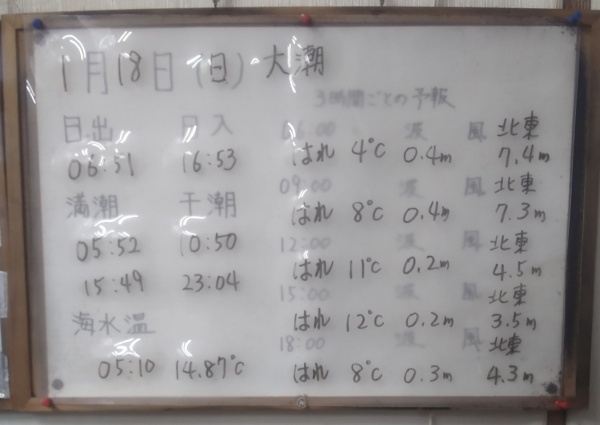 1月18日(日) 大潮
3時間ごとの予報
日出 日入
06:51 16:53
満潮 干潮
05:52 10:50
15:49 23:04
海水温
05:10 14.87℃
06:00 波 風 北東
はれ 4℃ 0.4m 7.4m
09:00 波 風 北東
はれ 8℃ 0.4m 7.3m
12:00 波 風 北東
はれ 11℃ 0.2m 4.5m
15:00 波 風 北東
はれ 12℃ 0.2m 3.5m
18:00 波 風 北東
はれ 8℃ 0.3m 4.3m